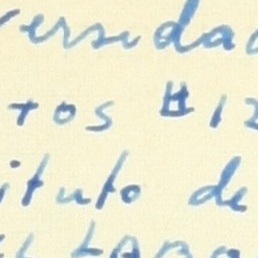 ersida
tos # 12
ituto de